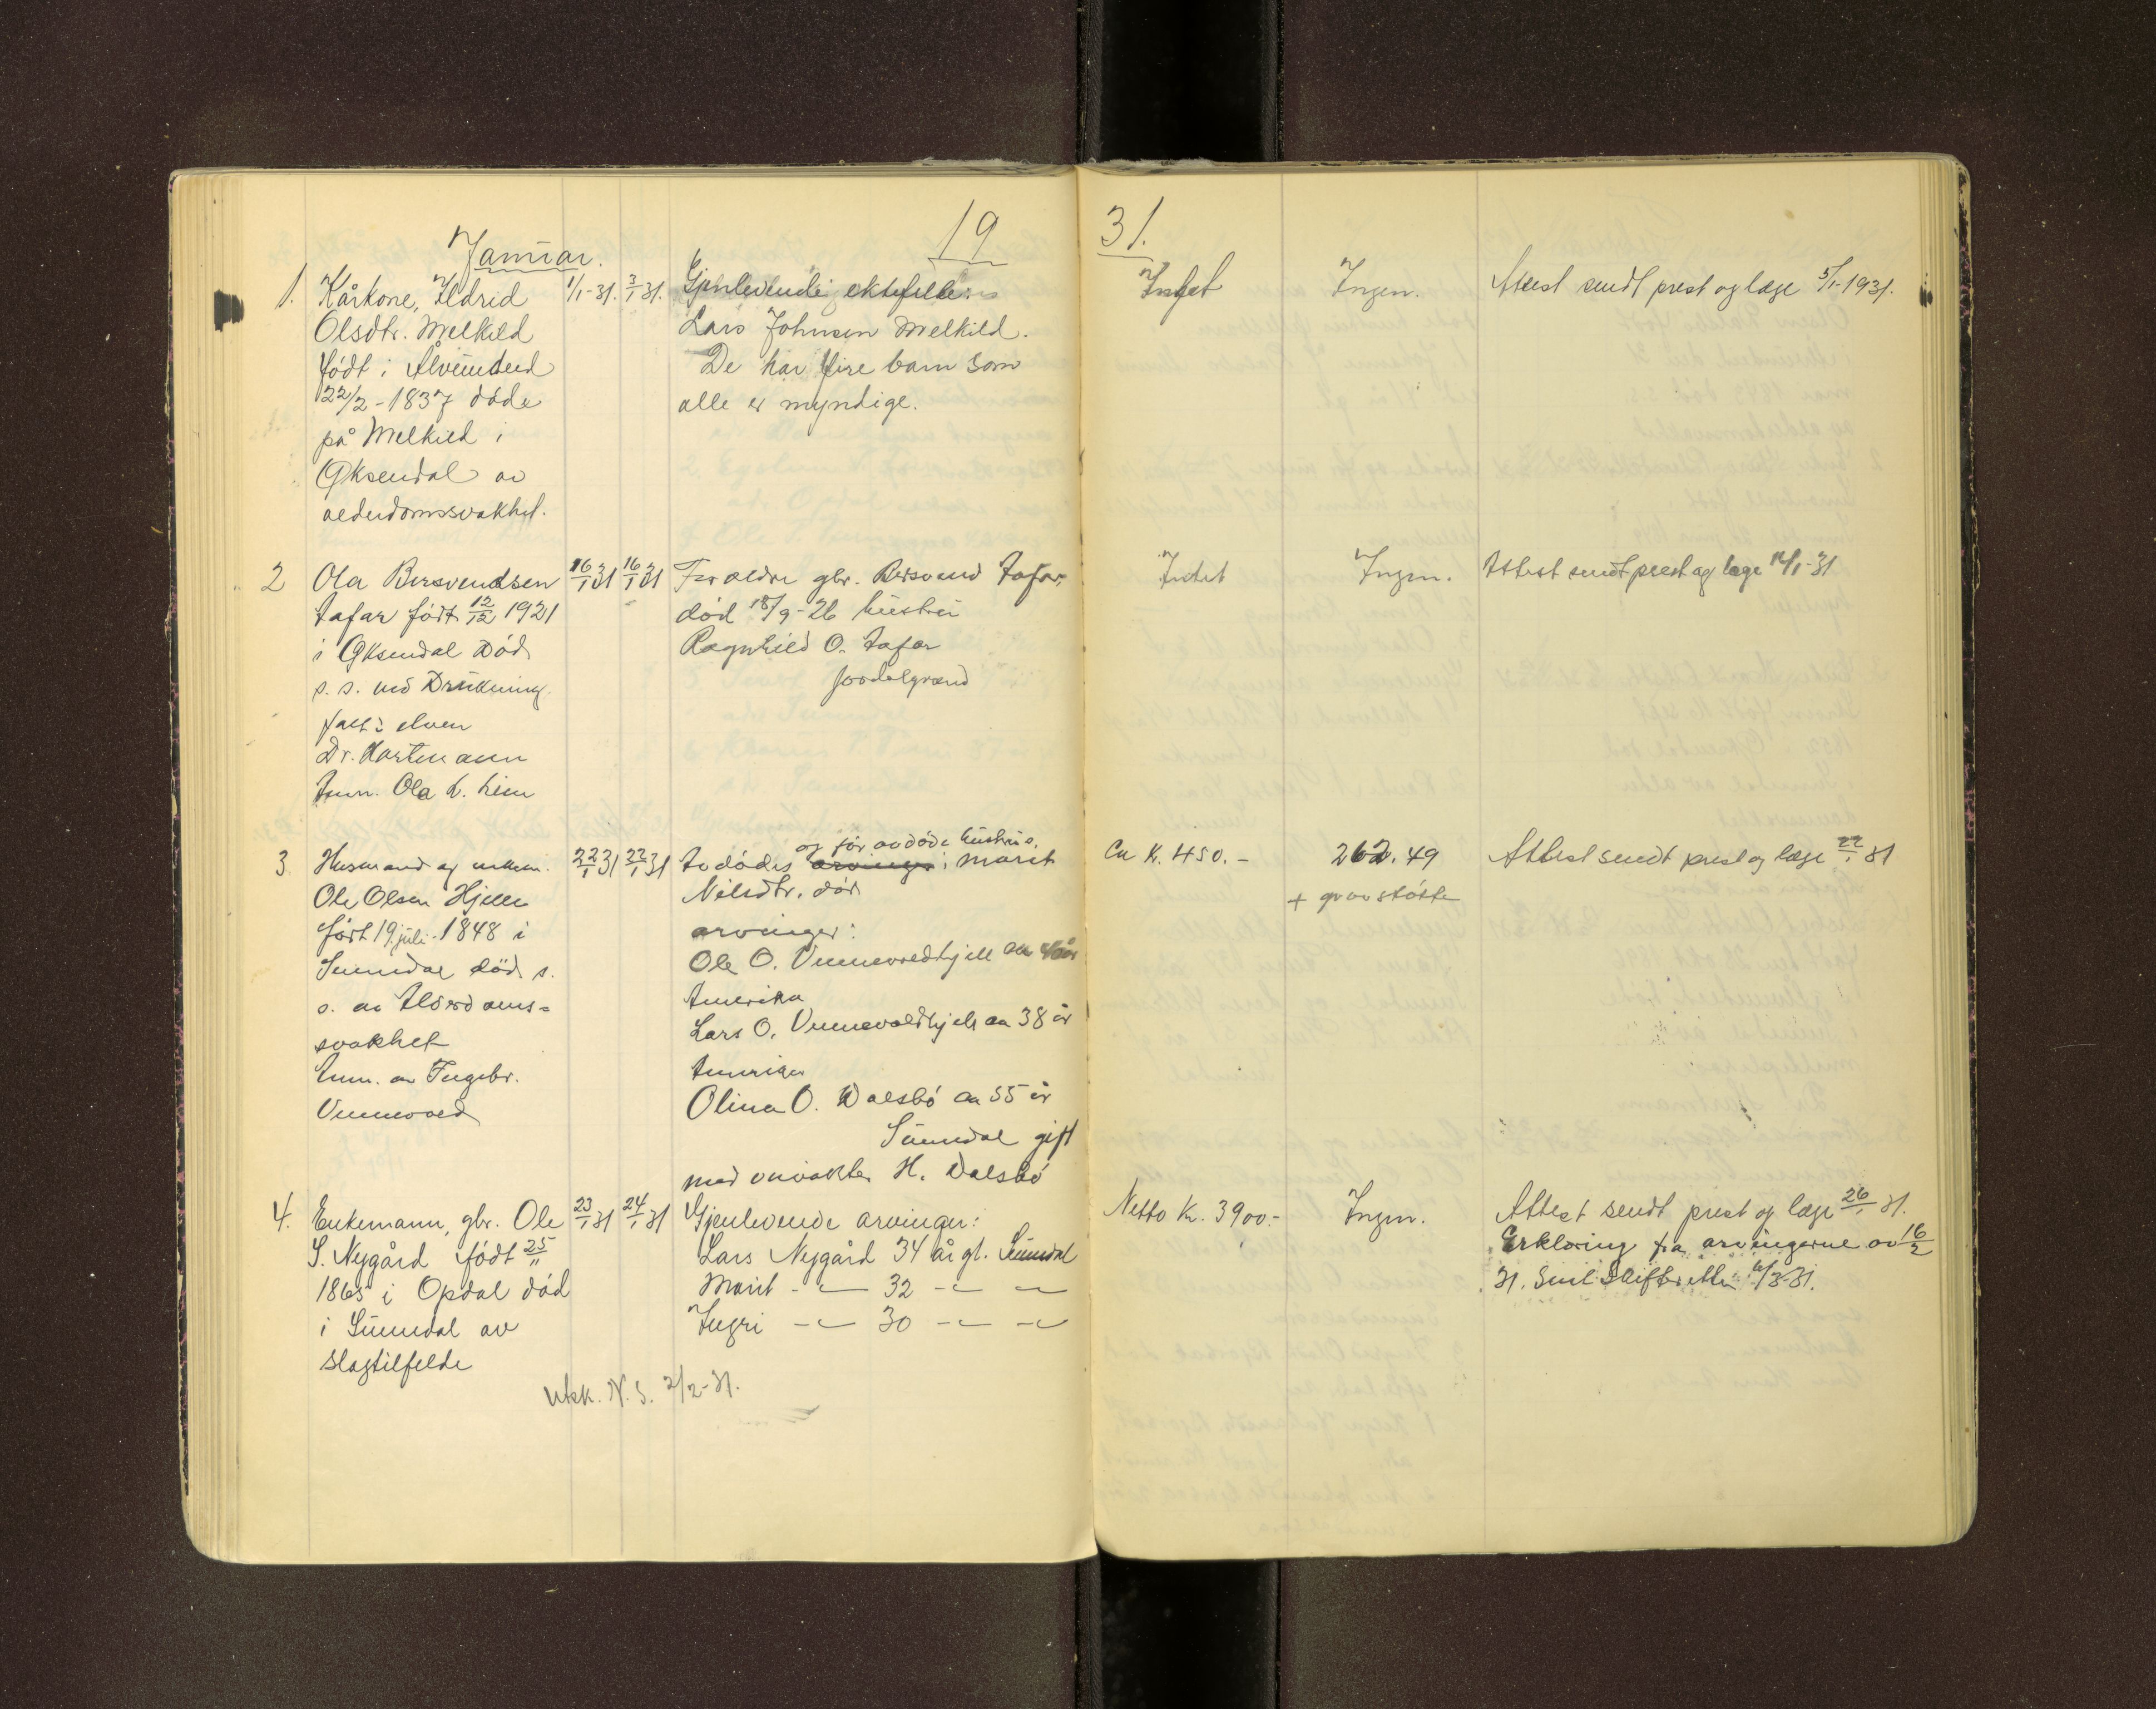 19 31.
Januar.
1. Kårkone, Ildrid
Olsdtr. Melkild
født i Ålvundeid
22/2-1837 døde
på Melkild i
Øksendal av
alderdomssvakhet.
1/1-31. 3/1 31.
Gjenlevende ektefelle:
Lars Johnsen Melkild.
De har fire barn som
alle er myndige.
Intet
Ingen.
Attest sendt prest og læge 5/1-1931.
2 Ola Bersvendsen
Tafar født 12/12 1921
i Øksendal Død
s. s. ved Drukning
falt i elven
Dr. Hartmann
Anm. Ola L. Lien
16/1 31 16/1 31
Foreldre gbr. Bersvend Tafar,
død 18/9-26 hustru
Ragnhild O. Tafar
Jordalgrend
Intet
Ingen.
Attest sendt prest og læge 16/1-31
3 Husmand og enkem.
Ole Olsen Hjelle
født 19. juli 1848 i
Sunndal død s.
s. av Alderdoms-
svakhet
Anm. av Ingebr.
Vennevold
22/1 31 22/1 31
og før avdøde hustru
Avdødes arvinger: Marit
Nilsdtr. død
arvinger:
Ole O. Vennevoldhjell ca 40 år
Amerika
Lars O. Vennevoldhjell ca 38 år
Amerika
Olina O. Dalsbø ca 55 år
Sunndal gift
med veivokter H. Dalsbø
Ca K. 450.-
262.49
+ gravstøtte
Attest sendt prest og læge 22/1 31
4. Enkemann, gbr. Ole
S. Nygård født 25/11
1865 i Opdal død
i Sunndal av
slagtilfelde
23/1 31 24/1 31
Gjenlevende arvinger:
Lars Nygård 34 år gl. Sunndal
Marit -"- 32 -"- -"-
Ingri -"- 30 -"- -"-
Netto Kr. 3900.-
Ingen.
Attest sendt prest og læge 26/1 31.
Erklæring fra arvingerne av 16/2
31. Sent Skifteretten 6/3-31.
Utsk. N. S. 2/2-31.